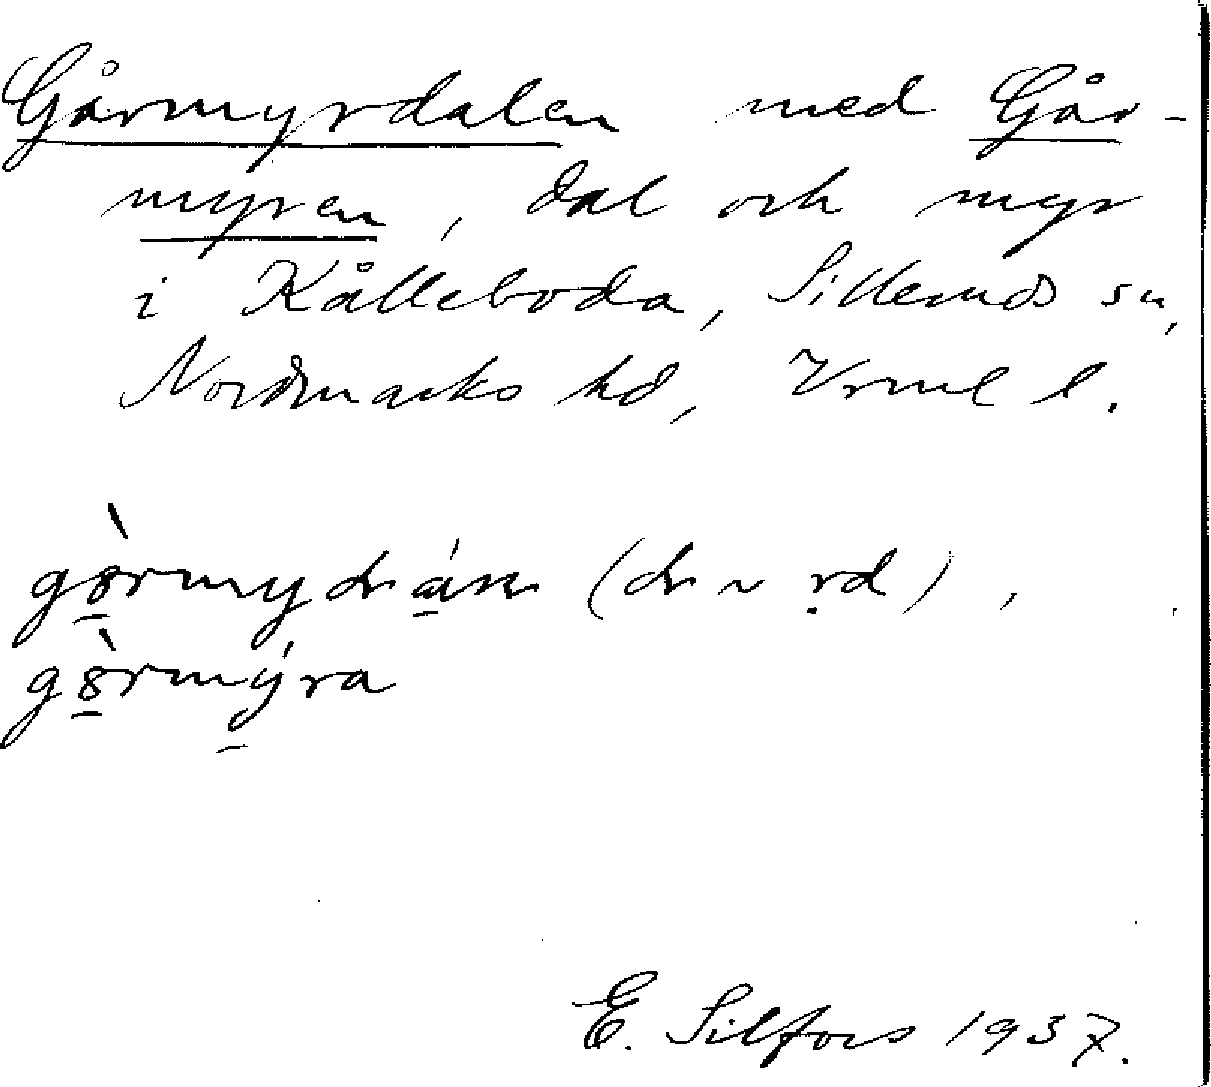 Gårmyrdalen med Går-
myren, dal och myr
i Kålleboda, Silleruds sn,
Nordmarks hd, Vrml l.
gòrmydráṉ (dr ~ ṛd),
gòrmýra
E. Silfors 1937.